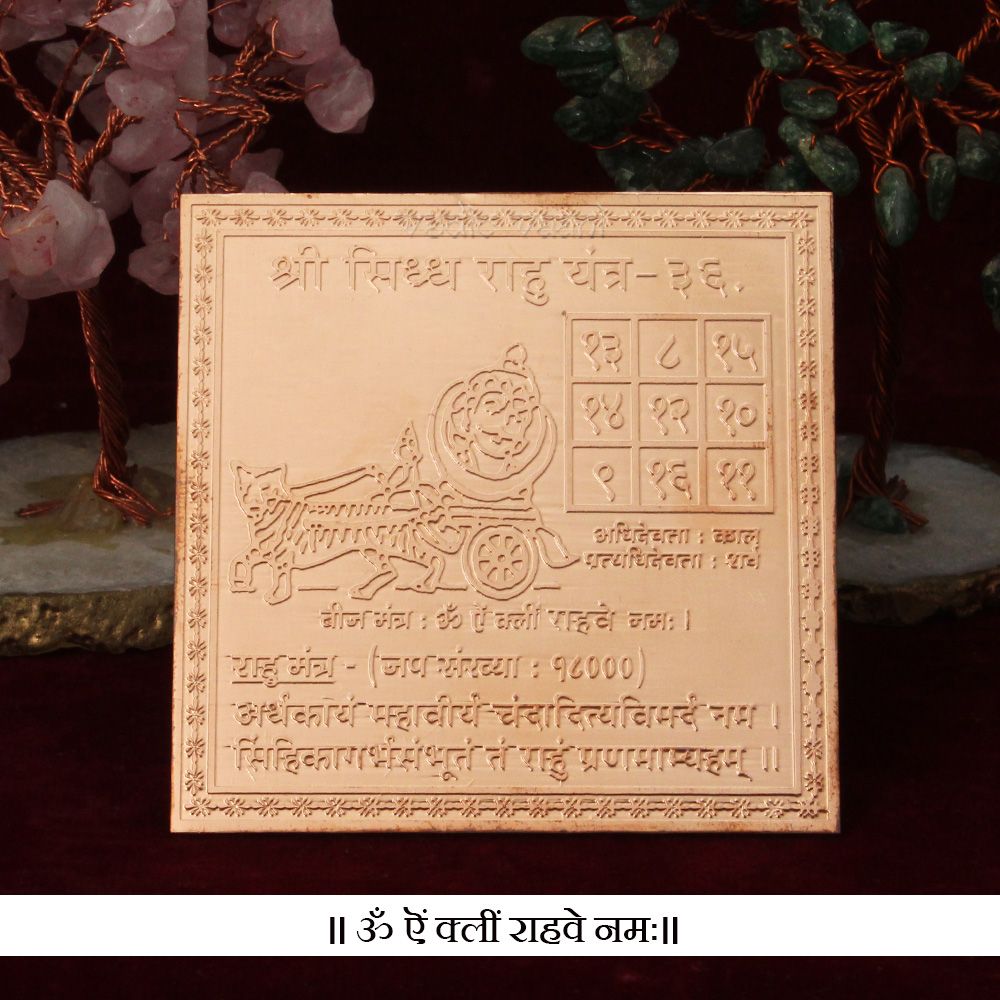 श्री सिध्ध राहु यंत्र - ३६.
१३ ८ १५
१४ १२ १०
९ १६ ११
अधिदेवता : काल
प्रत्यधिदेवता : शर्व
बीज मंत्र : ॐ ऐं क्लीं राहवे नमः।
राहु मंत्र - (जप संख्या : १८०००)
अर्धकायं महावीर्यं चंदादित्यविमर्दं नम ।
सिंहिकागर्भसंभूतं तं राहुं प्रणमाम्यहम् ॥
॥ ॐ ऐं क्लीं राहवे नमः॥